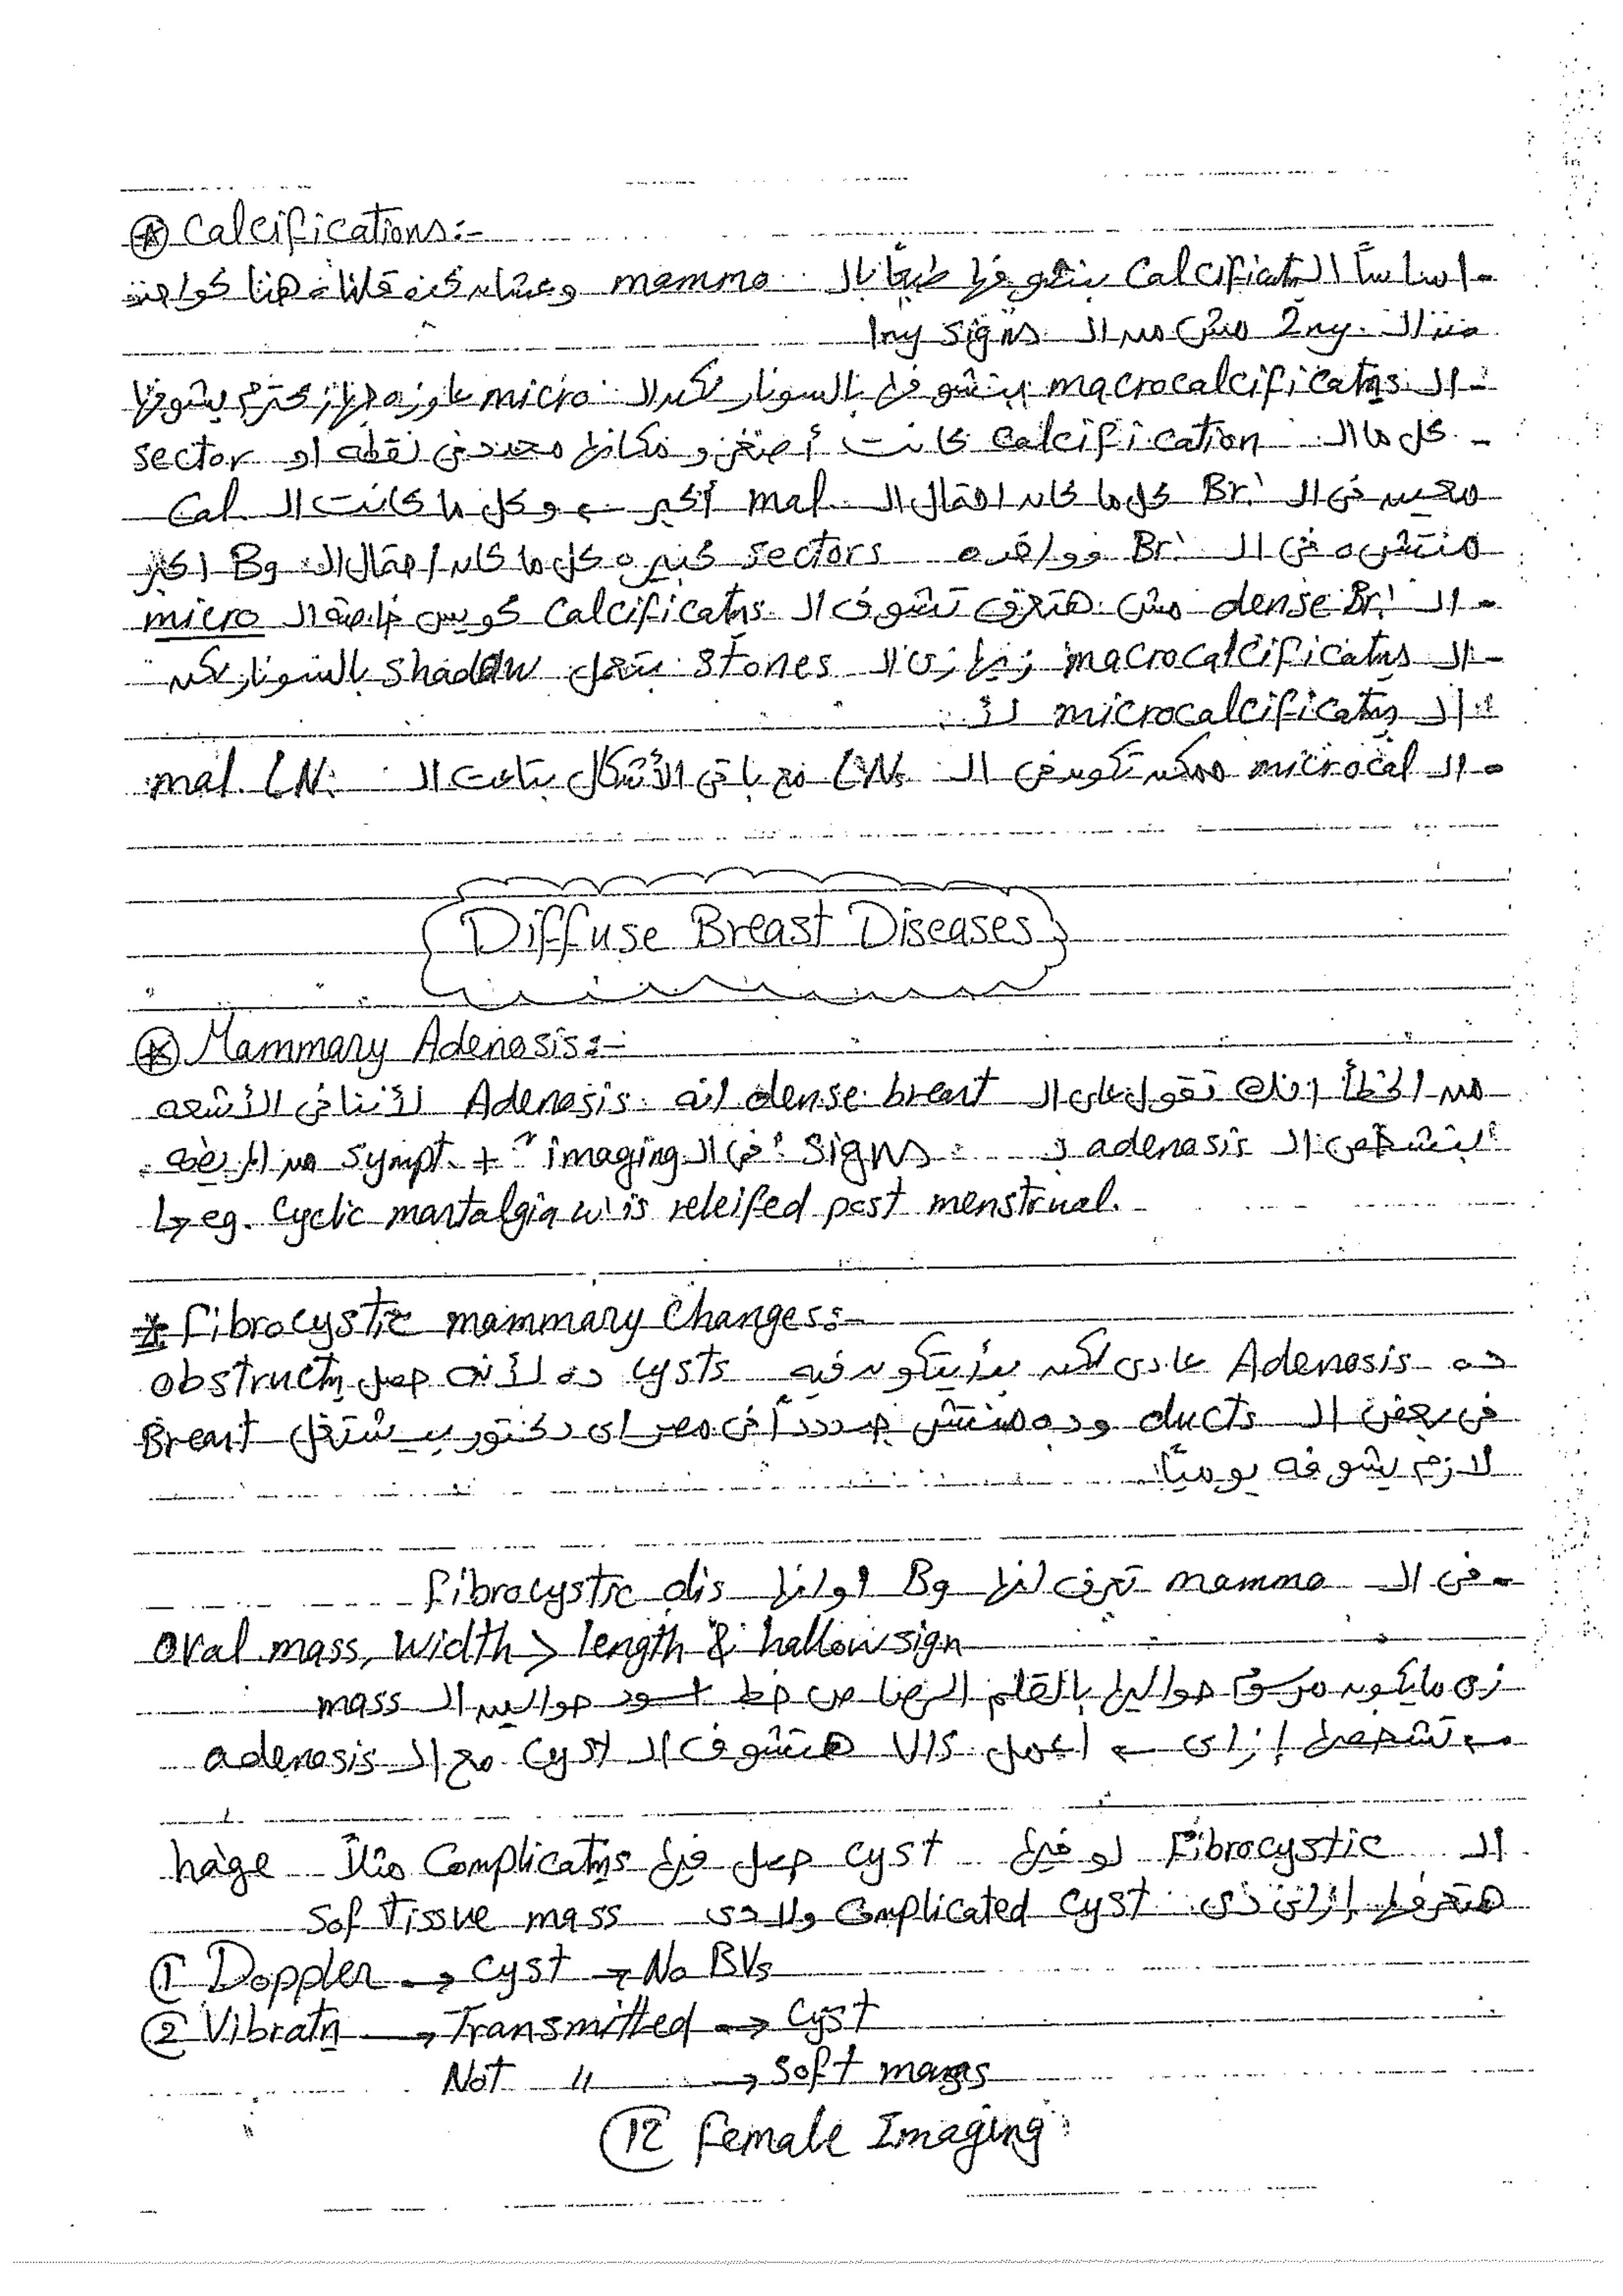 Calcifications:-
- اساساً الـ Calcificatns بنشوفها طبعاً بالـ mammo وعشان كده قلناه هنا كواحد
من الـ 2ny مش من الـ 1ny signs
- الـ macrocalcificatns بنشوفها بالسونار لكن الـ micro عاوزه جهاز محترم يشوفها
- كل ما الـ Calcification كانت أصغر و مكانها محدد فى نقطه او sector
معين فى الـ Br. كل ما كان احتمال الـ mal. أكبر ← و كل ما كانت الـ Cal.
منتشره فى الـ Br. وواخده sectors كبيره كل ما كان احتمال الـ Bg اكبر
- الـ dense Br. مش هتعرف تشوف الـ Calcificatns كويس خاصة الـ micro
- الـ macrocalcificatns زيها زى الـ stones بتعمل shadow بالسونار لكن
الـ microcalcificatns لأ.
- الـ microcal ممكن تكون فى الـ LNs مع باقى الأشكال بتاعت الـ mal. LN.
Diffuse Breast Diseases
Mammary Adenosis:-
من الخطأ انك تقول على الـ dense breast انه Adenosis لأننا فى الأشعه
بنشخص الـ adenosis بـ signs فى الـ imaging + sympt. من المريضه.
↳ eg. Cyclic mastalgia w' is releifed post menstrual.
* Fibrocystic mammary Changes:-
ده Adenosis عادى لكن بدأ يتكون فيه cysts ده لأنه حصل obstructn
فى بعض الـ ducts وده منتشر جددداً فى مصر اى دكتور بيشتغل Breast
لازم يشوفه يومياً.
- فى الـ mammo تعرف انها Bg او انها fibrocystic dis
oval mass, width > length & hallow sign
زى مايكون مرسوم حواليها بالقلم الرصاص خط اسود حوالين الـ mass
← تشخصها إزاى ← اعمل U/S هتشوف الـ cyst مع الـ adenosis
الـ Fibrocystic لو فيها cyst حصل فيها Complicatns مثلاً hage
هتعرفها إزاى دى Complicated cyst ولا دى Soft tissue mass
① Doppler → cyst → No BVs
② Vibratn → Transmitted → Cyst
Not " → soft mass
12 Female Imaging